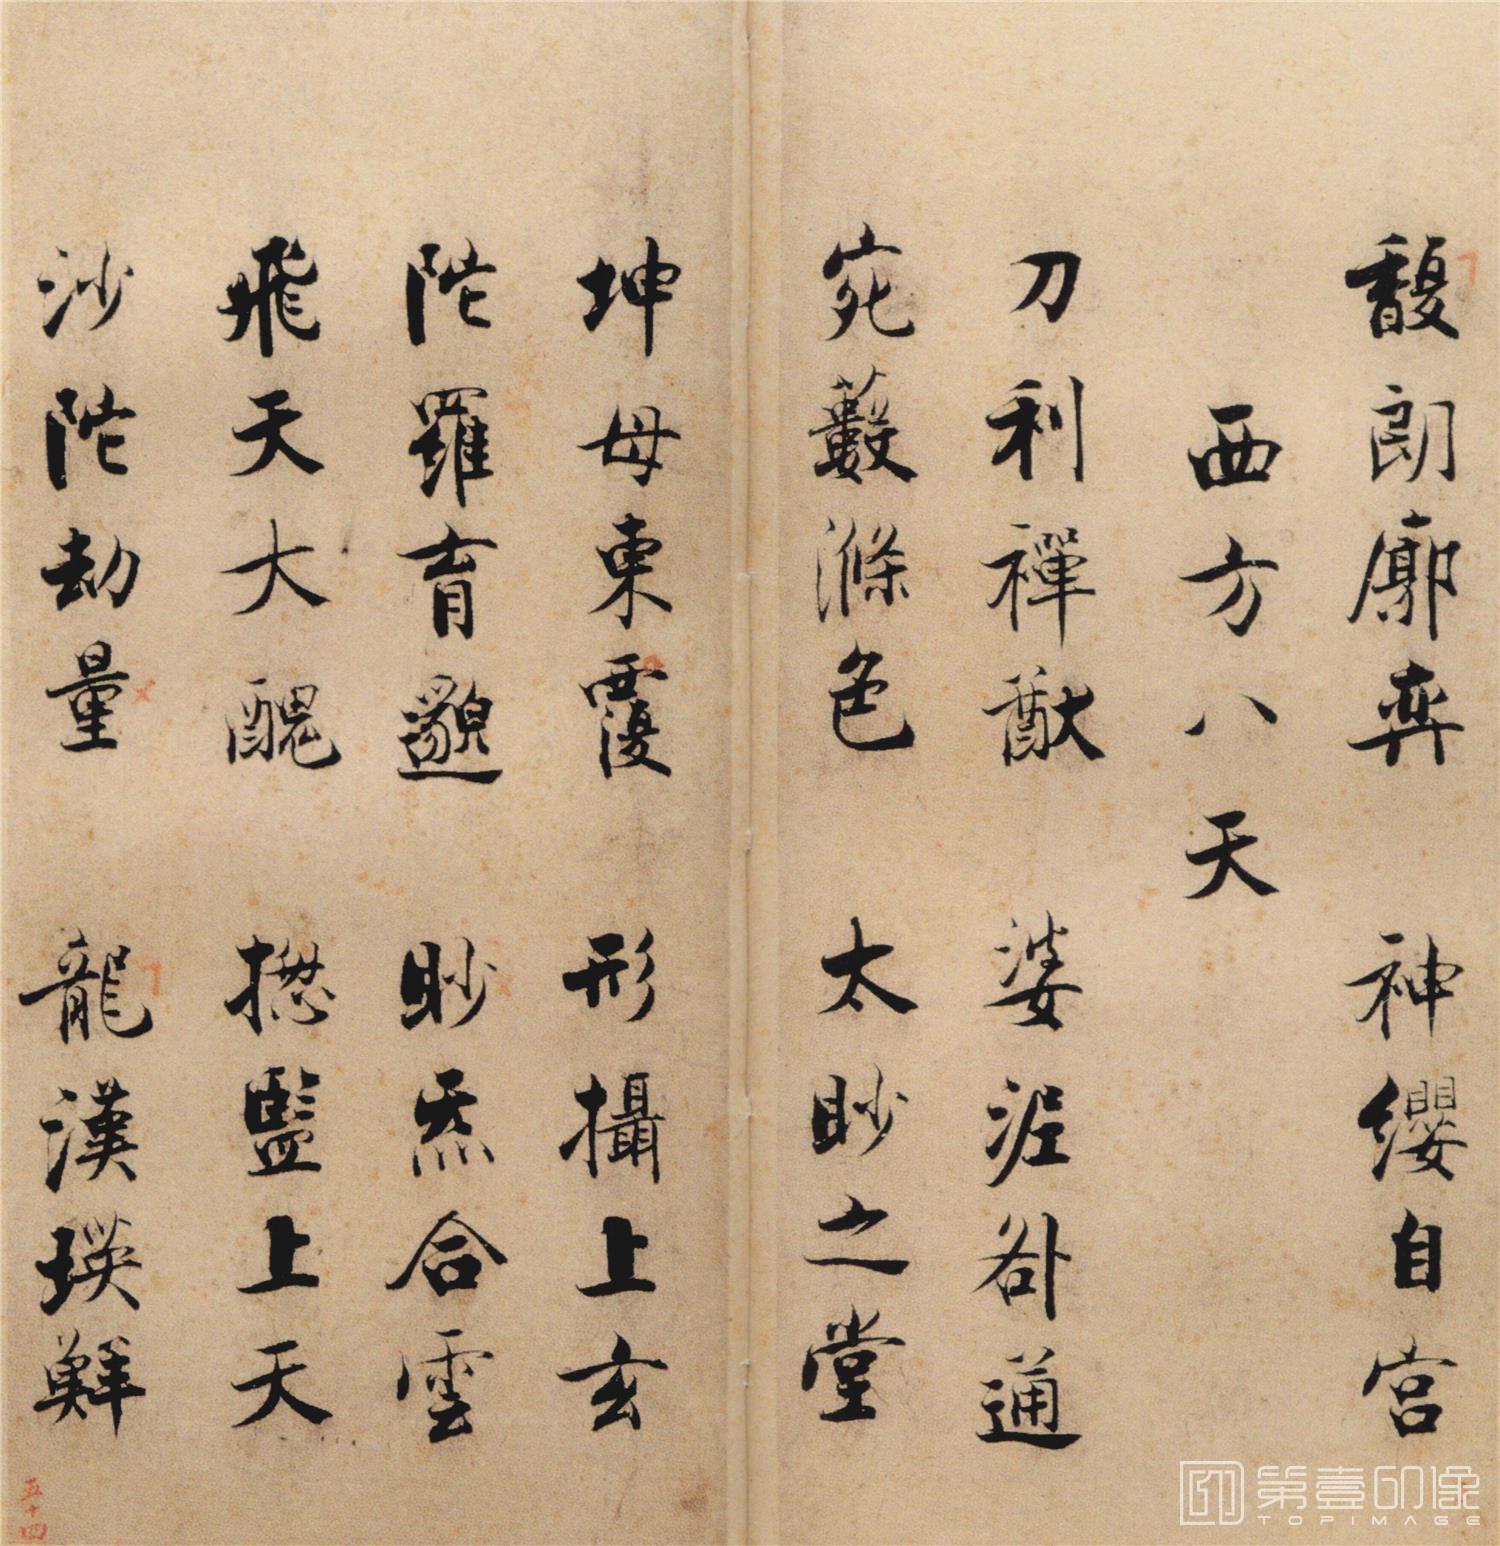 馥朗廓奕 神纓自宮
西方八天
刀利禪猷 婆泥咎通
宛藪滌色 太眇之堂
坤母東霞 形攝上玄
陀羅育邈 眇炁合雲
飛天大醜 摠監上天
沙陀劫量 龍漢瑛鮮
五十四
第壹印像
TOPIMAGE